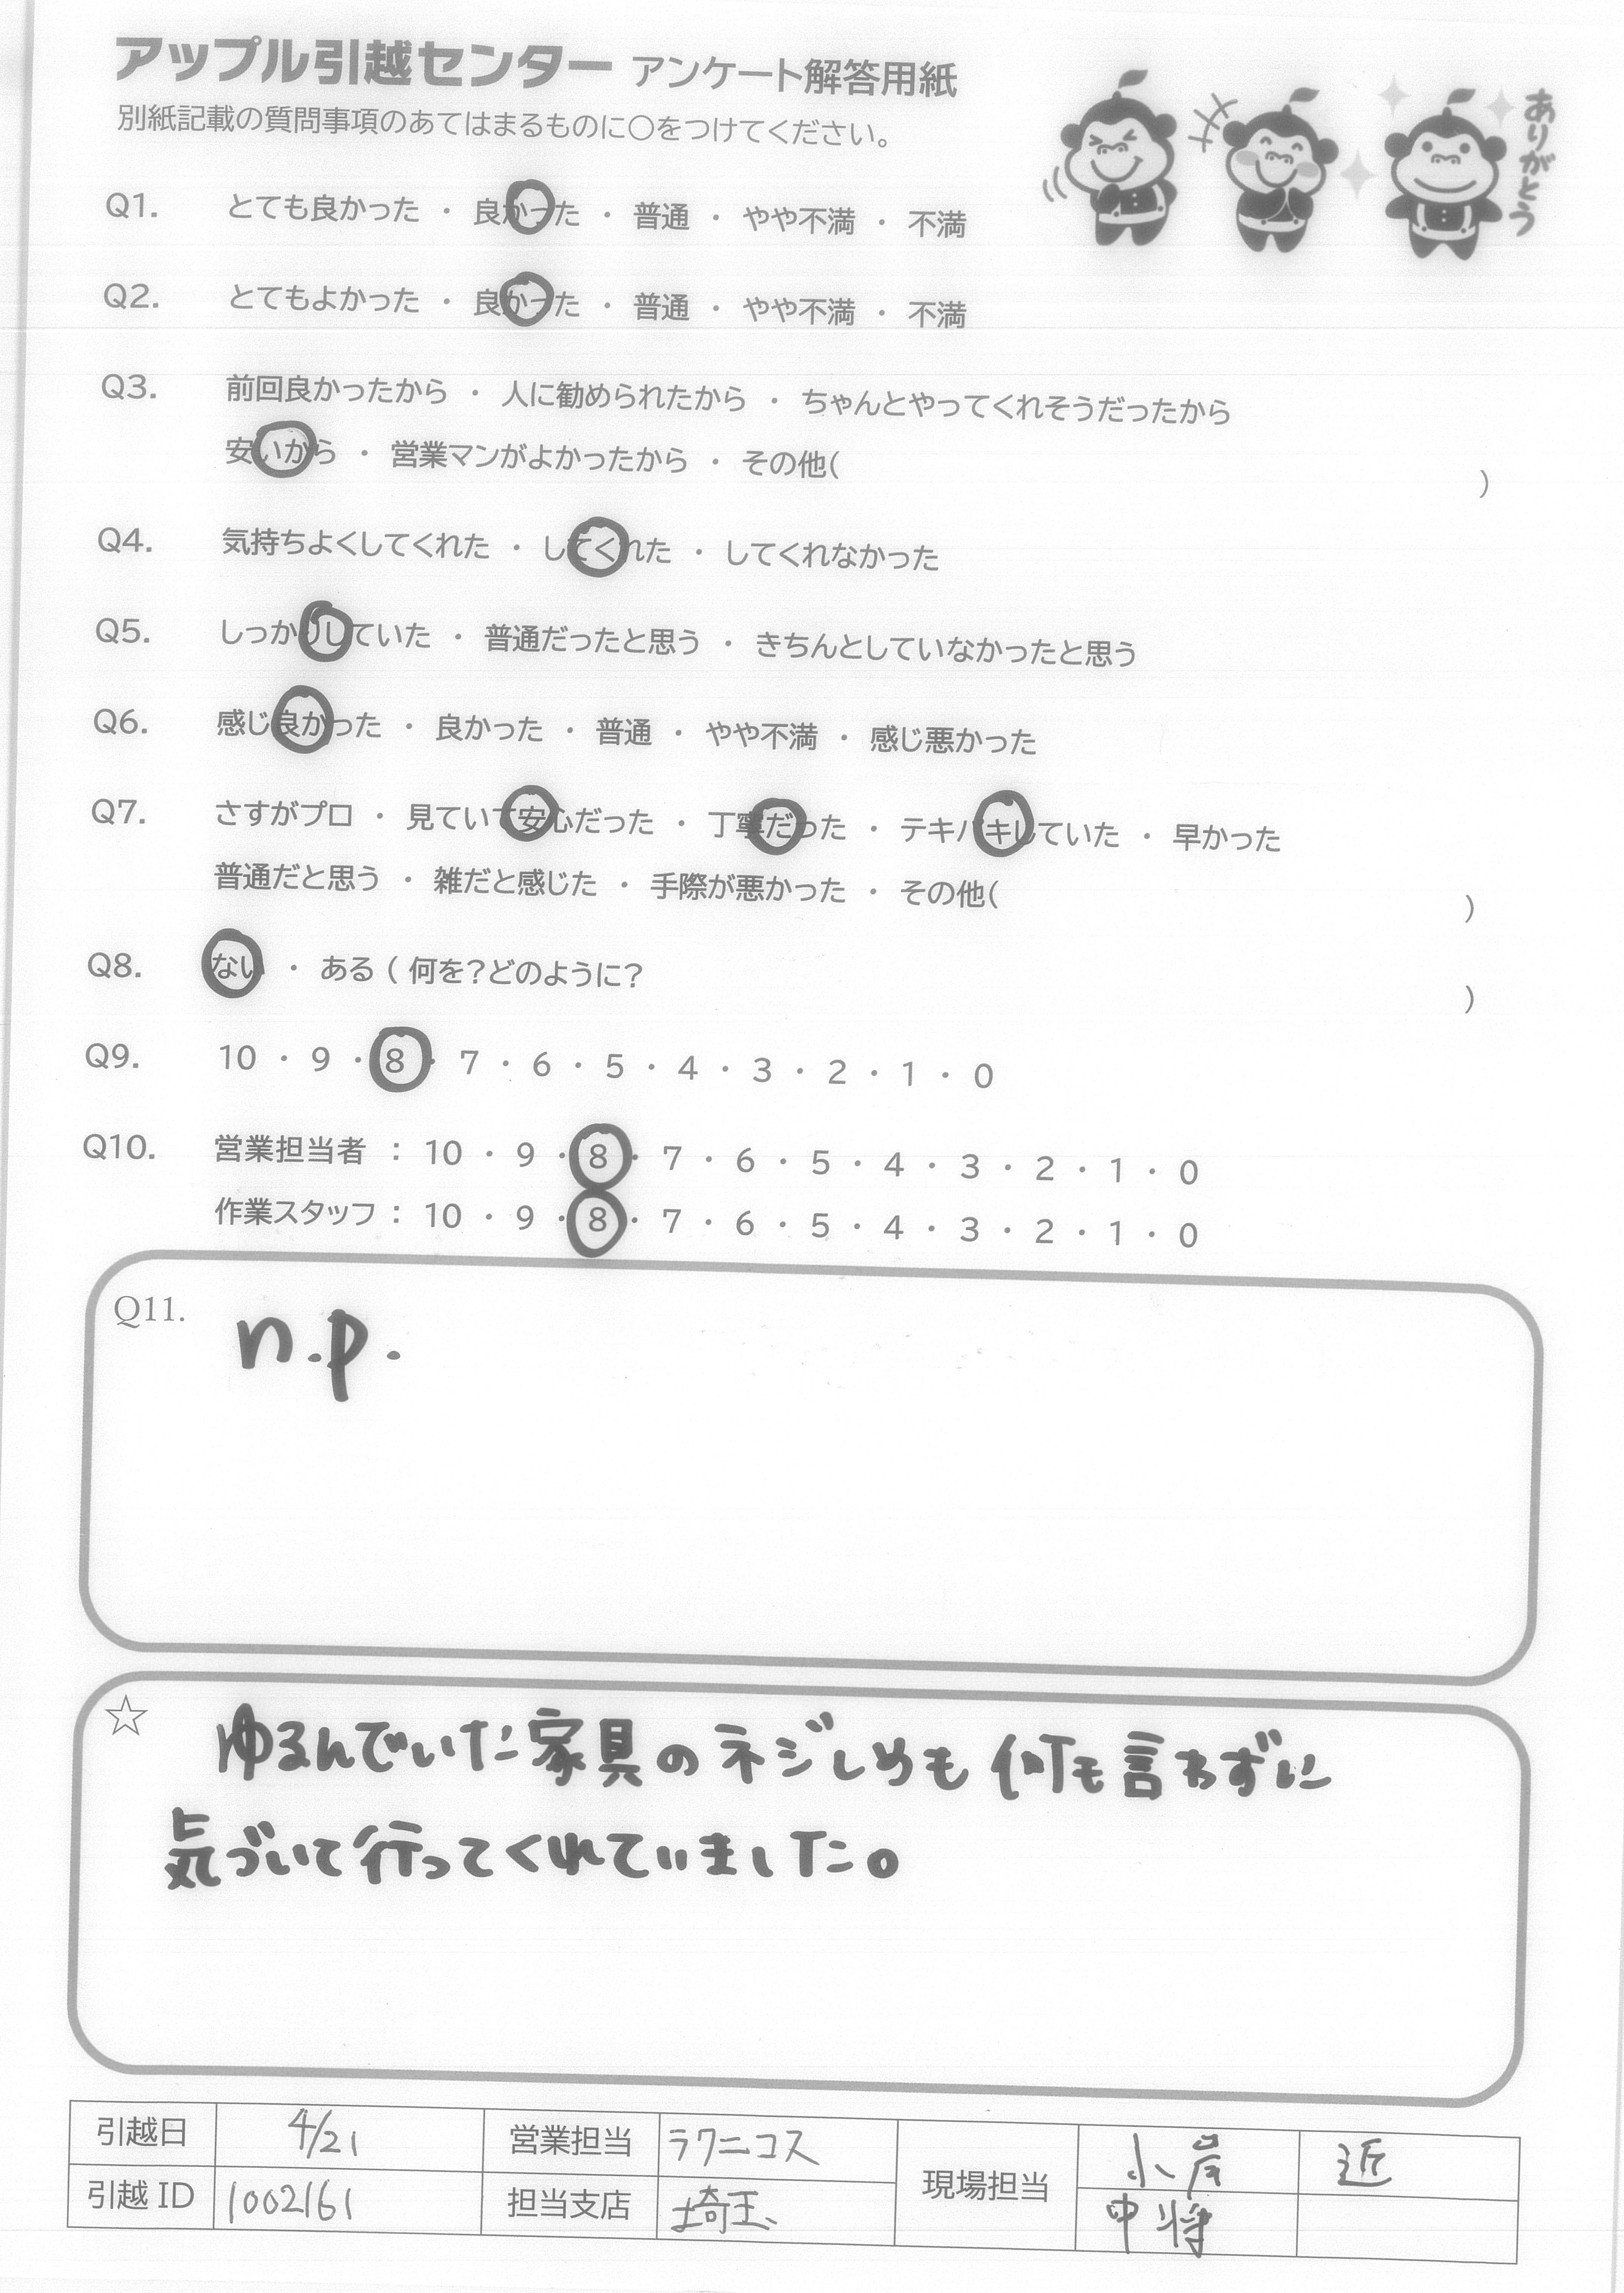 アップル引越センター アンケート解答用紙
別紙記載の質問事項のあてはまるものに○をつけてください。
ありがとう
Q1. とても良かった ・ 良かった ・ 普通 ・ やや不満 ・ 不満
Q2. とてもよかった ・ 良かった ・ 普通 ・ やや不満 ・ 不満
Q3. 前回良かったから ・ 人に勧められたから ・ ちゃんとやってくれそうだったから
安いから ・ 営業マンがよかったから ・ その他( )
Q4. 気持ちよくしてくれた ・ してくれた ・ してくれなかった
Q5. しっかりしていた ・ 普通だったと思う ・ きちんとしていなかったと思う
Q6. 感じ良かった ・ 良かった ・ 普通 ・ やや不満 ・ 感じ悪かった
Q7. さすがプロ ・ 見ていて安心だった ・ 丁寧だった ・ テキパキしていた ・ 早かった
普通だと思う ・ 雑だと感じた ・ 手際が悪かった ・ その他( )
Q8. ない ・ ある ( 何を?どのように? )
Q9. 10 ・ 9 ・ 8 ・ 7 ・ 6 ・ 5 ・ 4 ・ 3 ・ 2 ・ 1 ・ 0
Q10. 営業担当者 : 10 ・ 9 ・ 8 ・ 7 ・ 6 ・ 5 ・ 4 ・ 3 ・ 2 ・ 1 ・ 0
作業スタッフ : 10 ・ 9 ・ 8 ・ 7 ・ 6 ・ 5 ・ 4 ・ 3 ・ 2 ・ 1 ・ 0
Q11. n.p.
☆ ゆるんでいた家具のネジしめも何も言わずに
気づいて行ってくれていました。
引越日 4/21 営業担当 ラクニコス 現場担当 小岸 近
引越ID 1002161 担当支店 埼玉 中将